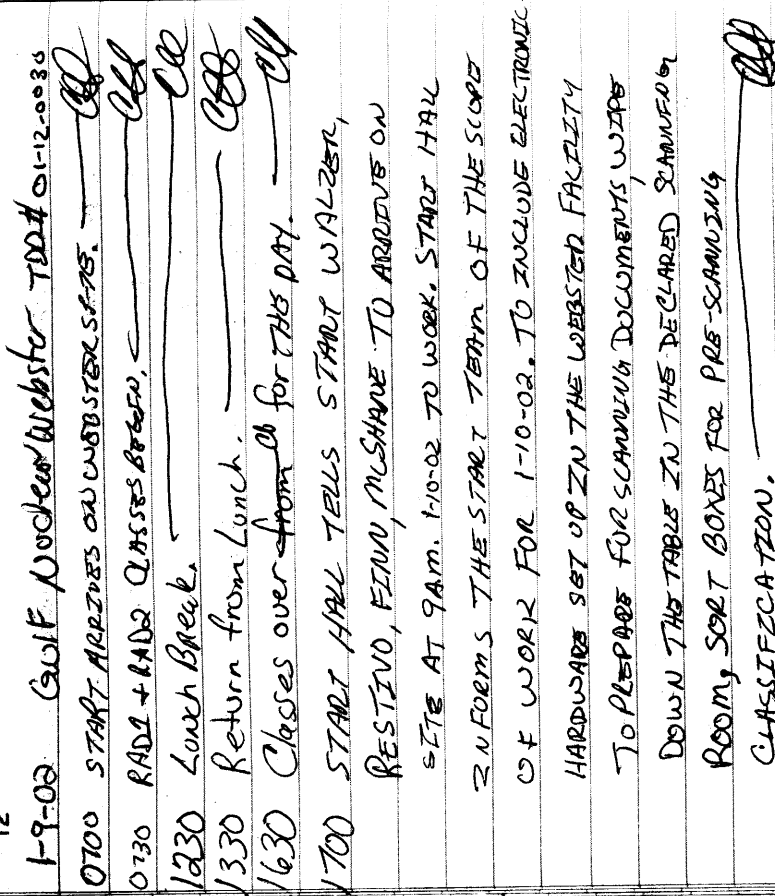 12
1-9-02 Gulf Nuclear Webster TDD# 01-12-0030
0700 START ARRIVES ON WEBSTER SITE.
0730 RAD1 + RAD2 CLASSES BEGIN.
1230 Lunch Break.
1330 Return from Lunch.
1630 Classes over from for THE DAY.
1700 START HALL TELLS START WALZER,
RESTIVO, FINN, MCSHANE TO ARRIVE ON
SITE AT 9AM. 1-10-02 TO WORK. START HALL
INFORMS THE START TEAM OF THE SCOPE
OF WORK FOR 1-10-02. TO INCLUDE ELECTRONIC
HARDWARE SET UP IN THE WEBSTER FACILITY
TO PREPARE FOR SCANNING DOCUMENTS, WIPE
DOWN THE TABLE IN THE DECLARED SCANNING
ROOM, SORT BOXES FOR PRE-SCANNING
CLASSIFICATION.